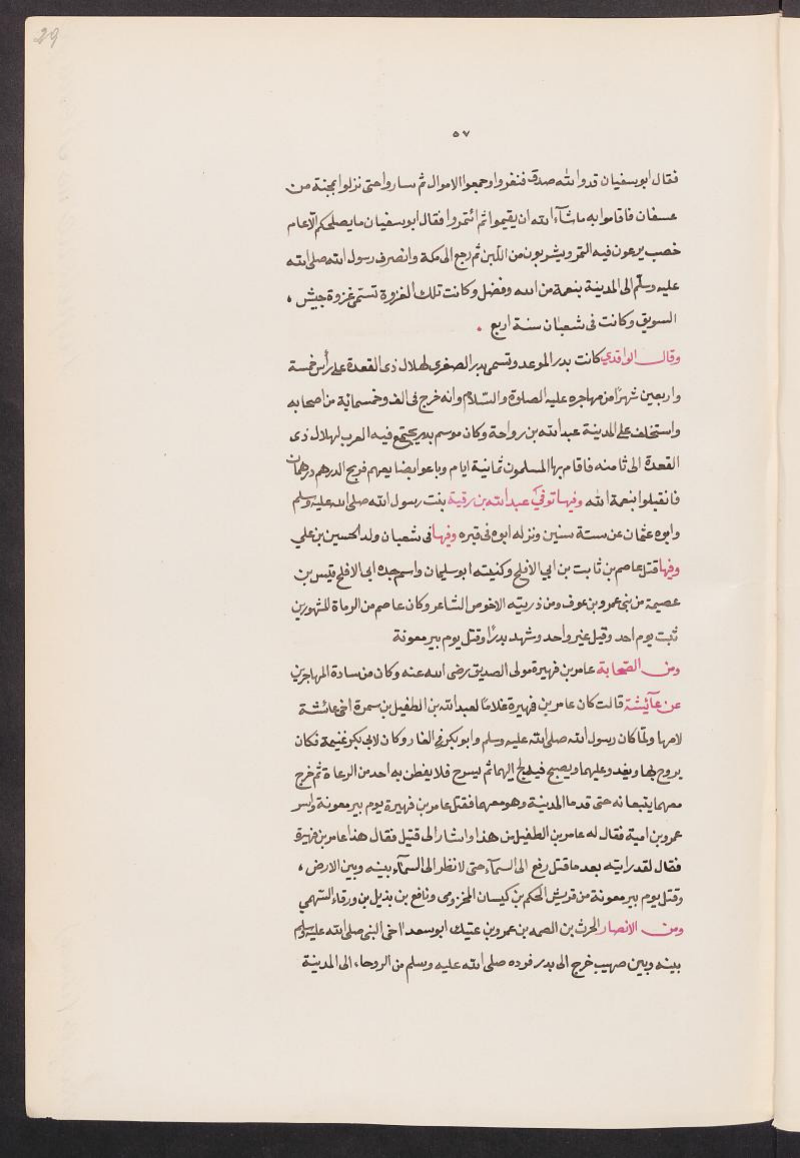 29
٥٧
فقال ابوسفيان قد والله صدق فنفروا وجمعوا الاموال ثم ساروا حتى نزلوا بمجنة من
عسفان فاقاموا به ماشآء الله ان يقيموا ثم ائتمروا فقال ابوسفيان مايصلحكم الّا عام
خصب يرعون فيه التمر ويشربون من اللبن ثم رجع الى مكة وانصرف رسول الله صلى الله
عليه وسلّم الى المدينة بنعمة من الله وفضل وكانت تلك الغزوة تسمى غزوة جيش ،
السويق وكانت فى شعبان سنة اربع .
وقال الواقدي كانت بدر الموعد وتسمى بدر الصغرى لهلال ذى القعدة على رأس خمسة
واربعين شهرًا من مهاجره عليه الصلوة والسّلام وانه خرج فى الف وخمسمائة من اصحابه
واستخلف على المدينة عبدالله بن رواحة وكان موسم بدر يجتمع فيه العرب لهلال ذى
القعدة الى ثامنه فاقام بها المسلمون ثمانية ايام وباعوا بضايعهم فربح الدرهم درهمان
فانقبلوا بنعمة الله وفيها توفي عبدالله بن رقية بنت رسول الله صلى الله عليه وسلم
وابوه عثمان عن ستة سنين ونزله ابوه فى قبره وفيها فى شعبان ولد الحسين بن علي
وفيها قتل عاصم بن ثابت بن ابي الافلح وكنيته ابوسليمان واسم جده ابى الافلح قيس بن
عصيمة من بنى عمرو بن عوف ومن ذريته الاخوص الشاعر وكان عاصم من الرماة المشهورين
ثبت يوم احد وقيل غير واحد وشهد بدرًا وقتل يوم بيرمعونة
ومن الصّحابة عامر بن فهيرة مولى الصديق رضى الله عنه وكان من سادة المهاجرين
عن عآئيشة قالت كان عامر بن فهيرة غلامًا لعبدالله بن الطفيل بن سمرة اخى عائشة
لامها ولمّا كان رسول الله صلى الله عليه وسلم وابوبكر فى الغار وكان لابى بكر غنيمة فكان
يروح بها ويغد وعليهما ويصبح فيدلج اليهما ثم ليسرح فلا يفطن به احد من الرعاة ثم خرج
معهما يتبعانه حتى قدما المدينة وهو معهما فقتل عامر بن فهيرة يوم بيرمعونة واسر
عمرو بن امية فقال له عامر بن الطفيل من هذا واشار الى قتيل فقال هذا عامر بن فهيرة
فقال لقد رايته بعد ماقتل رفع الى السمآء حتى لانظر الى السمآء بينه وبين الارض ،
وقتل يوم بيرمعونة من قريش الحكم بن كيسان المخزومى ونافع بن بذيل بن ورقاء السّهمي
ومن الانصار الحرث بن الصمه بن عمرو بن عتيك ابوسعد اخى النبى صلى الله عليه وسلم
بينه وبين صهيب خرج الى بدر فرده صلى الله عليه وسلم من الروحاء الى المدينة